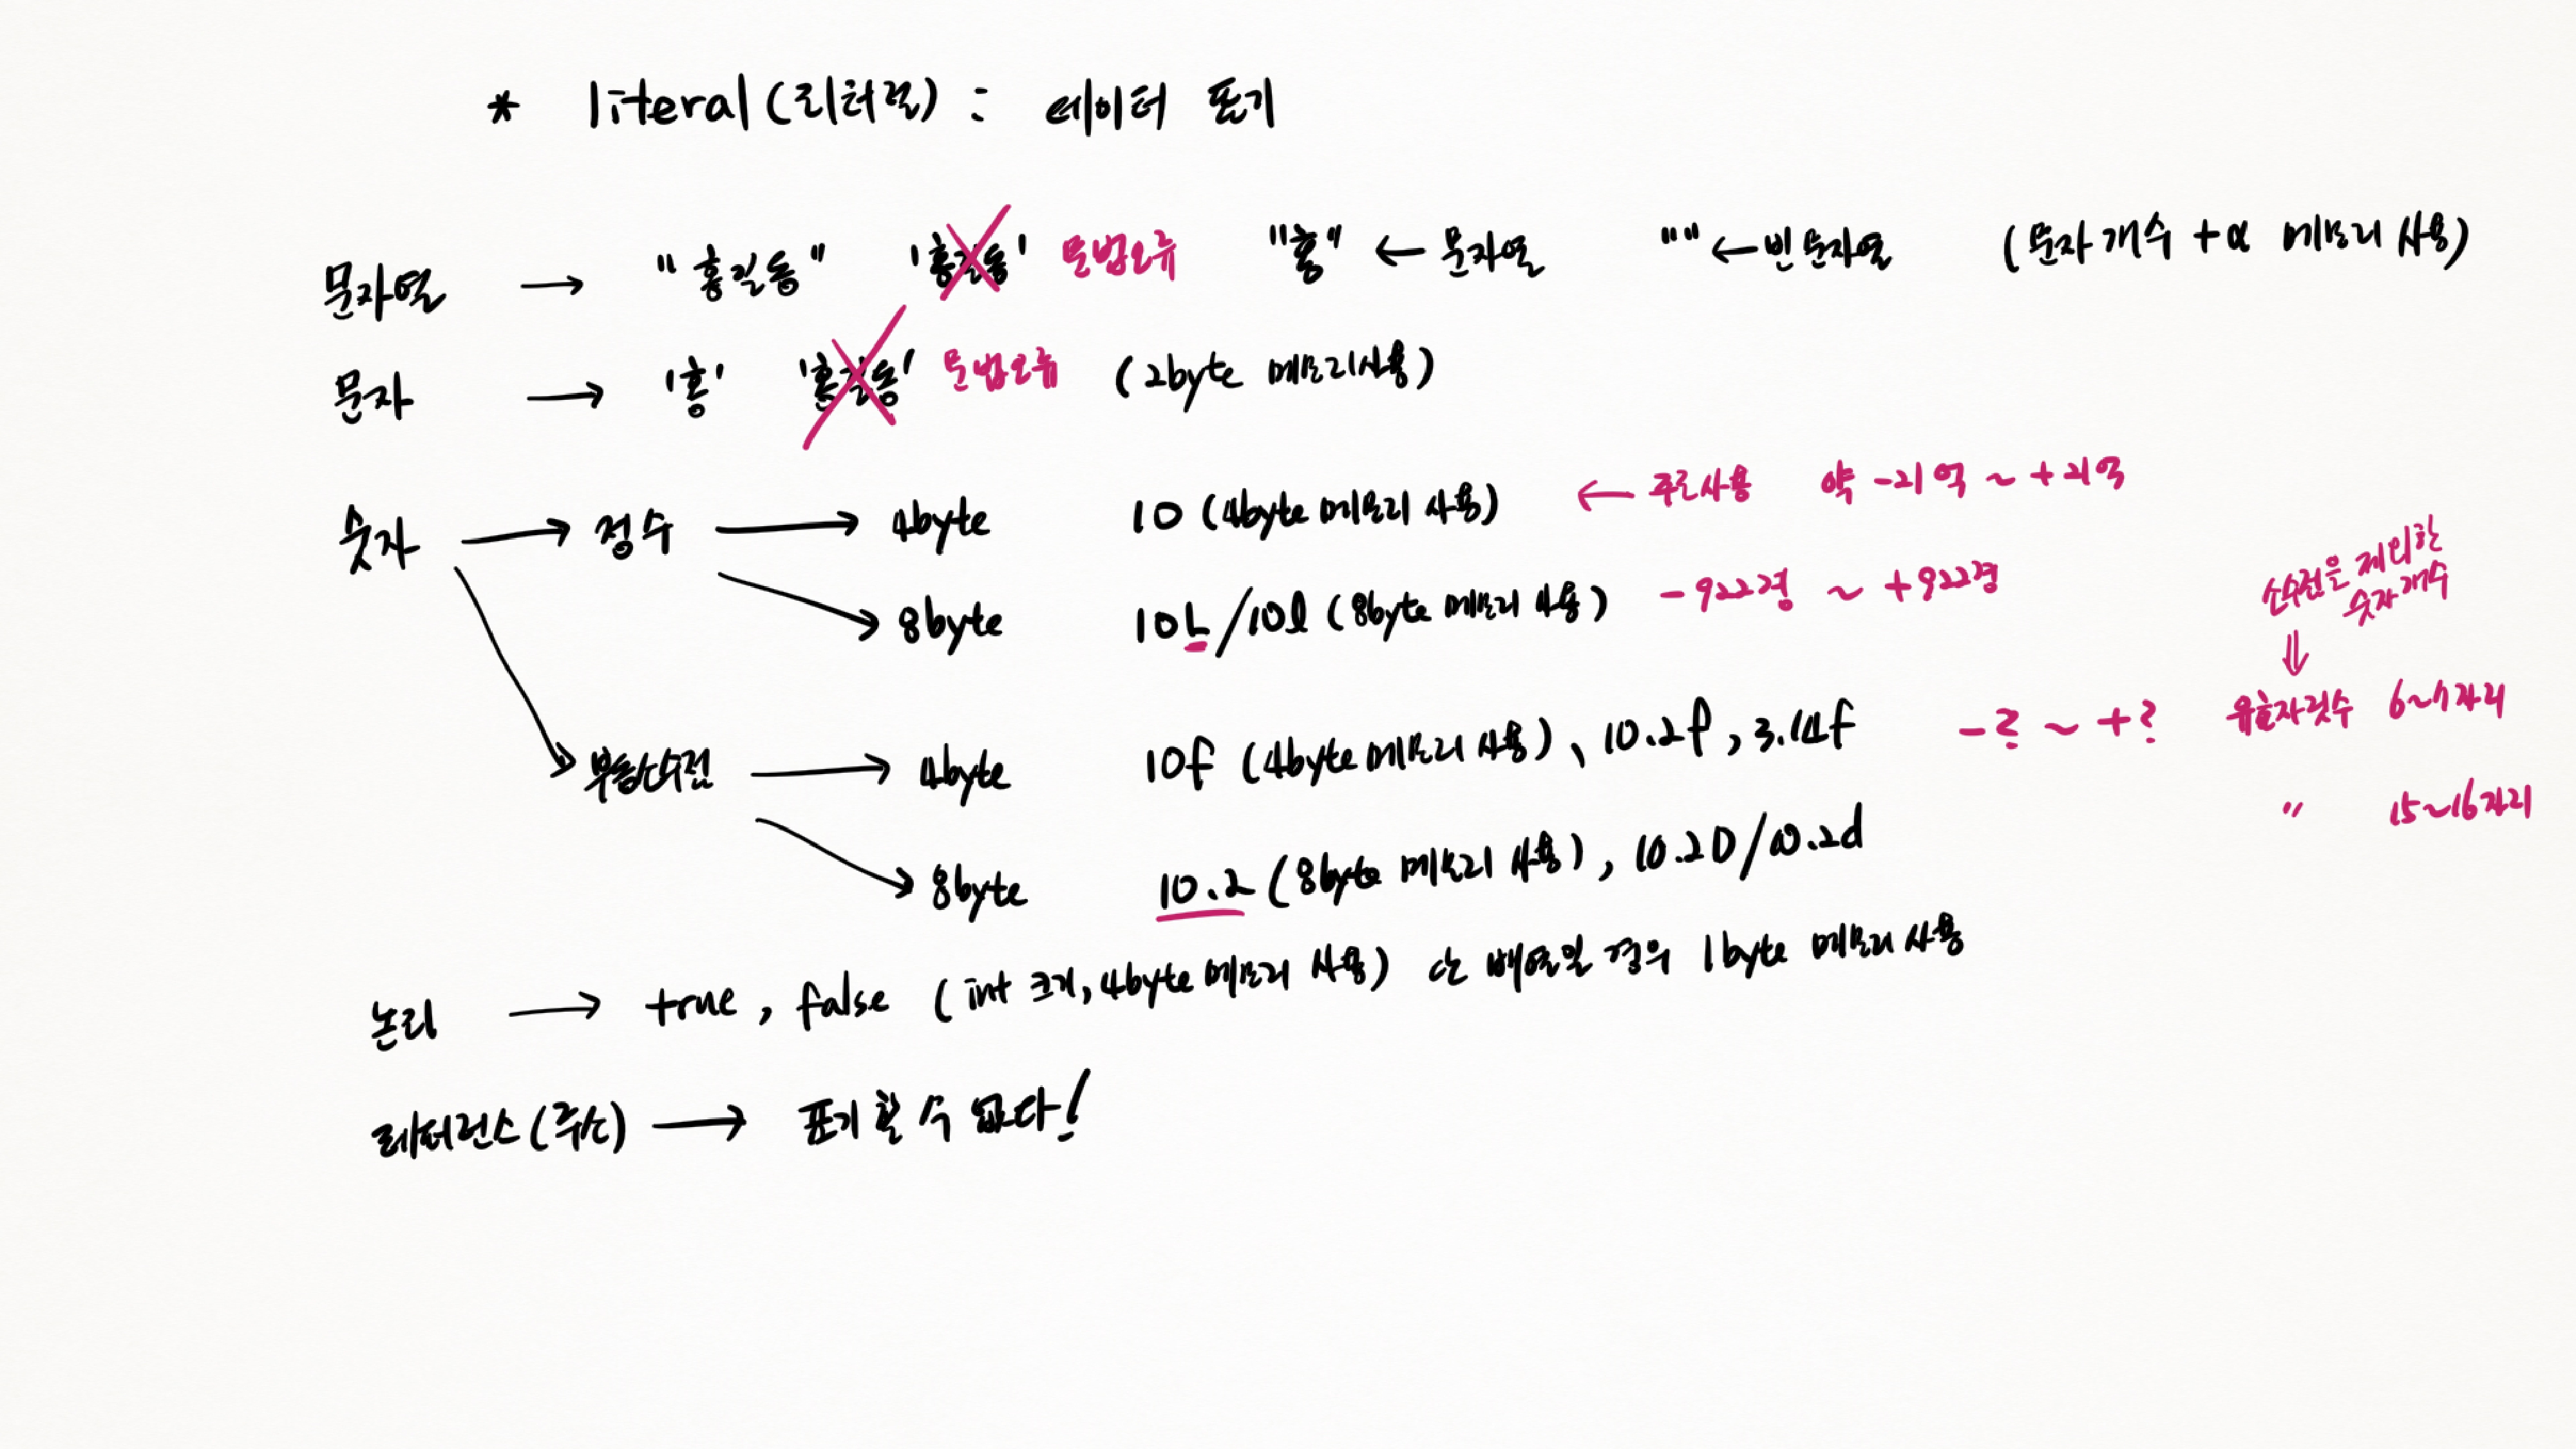 * literal(리터럴) : 데이터 표기
문자열 → "홍길동" '홍길동' 문법오류 "홍" ← 문자열 "" ← 빈 문자열 (문자 개수 + α 메모리 사용)
문자 → '홍' '홍길동' 문법오류 (2byte 메모리사용)
숫자 → 정수 → 4byte 10 (4byte 메모리 사용) ← 주로사용 약 -21억 ~ +21억
→ 8byte 10L/10l (8byte 메모리 사용) -922경 ~ +922경
소수점은 제외한
숫자 개수
⇓
→ 부동소수점 → 4byte 10f (4byte 메모리 사용), 10.2f, 3.14f -? ~ +? 유효자릿수 6~7자리
→ 8byte 10.2 (8byte 메모리 사용), 10.2D/10.2d " 15~16자리
논리 → true, false (int 크기, 4byte 메모리 사용) 단 배열일 경우 1byte 메모리 사용
레퍼런스(주소) → 표기할 수 없다!